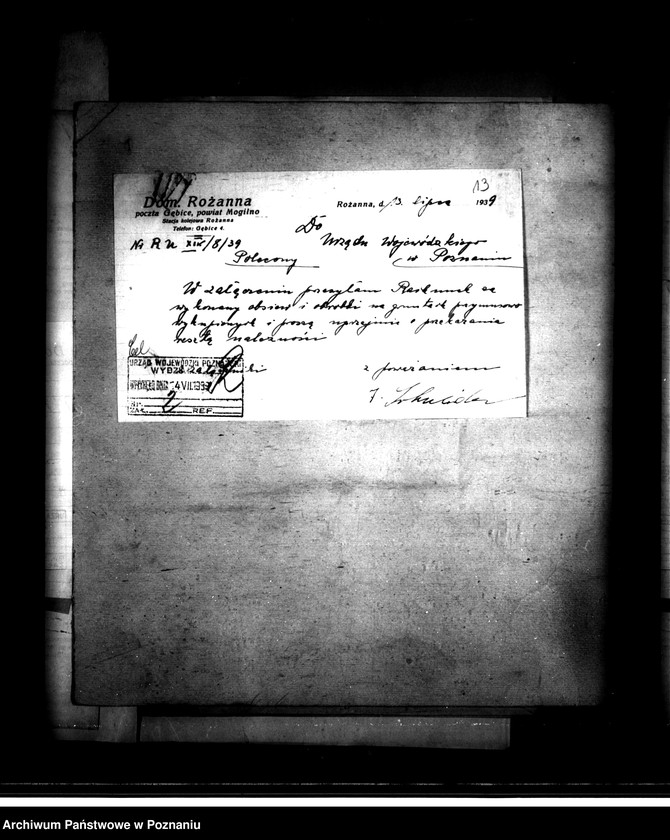 13
Dom. Rożanna
poczta Gębice, powiat Mogilno
Stacja kolejowa Rożanna
Telefon: Gębice 4.
Rożanna, d. 3. lipca 1939
Do
Nr R u XIV/8/39
Urzędu Wojewódzkiego
Polecony
w Poznaniu
W załączeniu przesyłam Rachunek za
wykonany obsiew i obróbki na gruntach przymusowo
wykupionych i proszę uprzejmie o przekazanie
resztę należności
z poważaniem
URZĄD WOJEWÓDZKI POZNAŃSKI
WPŁYNĘŁO DNIA -4 VII 1939
Nr.
ZAŁ. 2 REF.
Archiwum Państwowe w Poznaniu